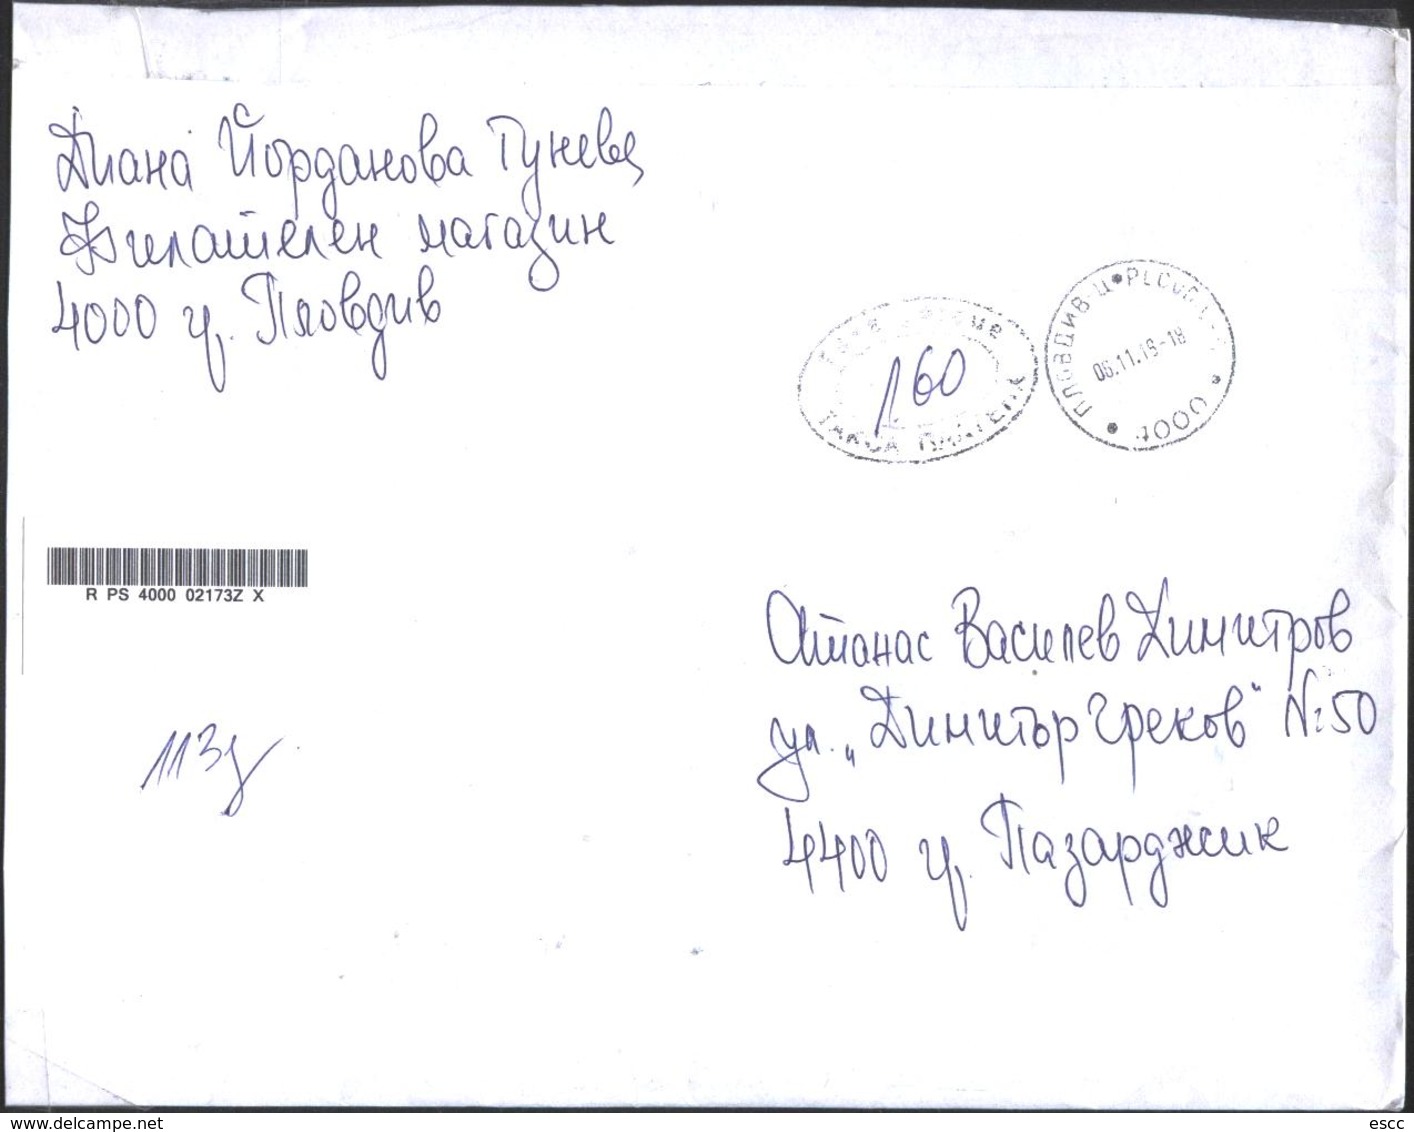 Диана Йорданова Гунева
Филателен магазин
4000 ц. Пловдив
ТАКСА ПЛАТЕНА
1 60
ПЛОВДИВ Ц • PLOVDIV
06.11.16-18
4000
R PS 4000 02173Z X
113g
Атанас Василев Димитров
ул. „Димитър Греков" №50
4400 ц. Пазарджик
www.delcampe.net
escc